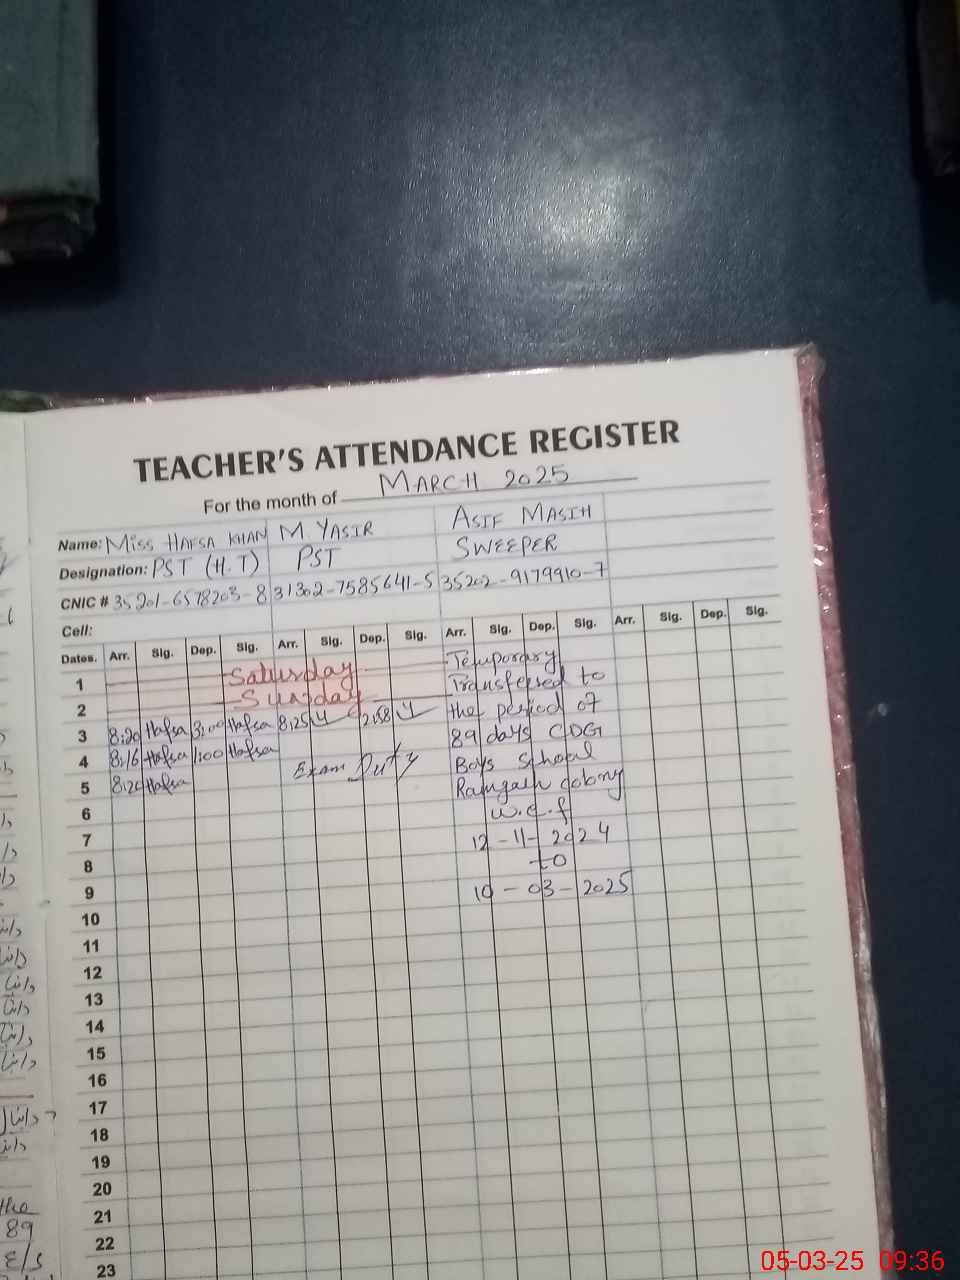 TEACHER'S ATTENDANCE REGISTER
For the month of MARCH 2025
Name: MISS HAFSA KHAN M YASIR ASIF MASIH
Designation: PST (H.T) PST SWEEPER
CNIC # 35201-6578203-8 31302-7585641-5 35202-9179910-7
Cell:
Dates. Arr. Sig. Dep. Sig. Arr. Sig. Dep. Sig. Arr. Sig. Dep. Sig. Arr. Sig. Dep. Sig.
1 Saturday Temporary
2 Sunday Transfered to
3 8:20 Hafsa 3:00 Hafsa 8:25 Y 2:58 Y the period of
4 8:16 Hafsa 1:00 Hafsa Exam Duty 89 days CDG
5 8:20 Hafsa Boys School
6 Ramgarh colony
w.e.f
7 12-11-2024
8 to
9 10-03-2025
10
11
12
13
14
15
16
17
18
19
20
21
22
23
the
89
05-03-25 09:36